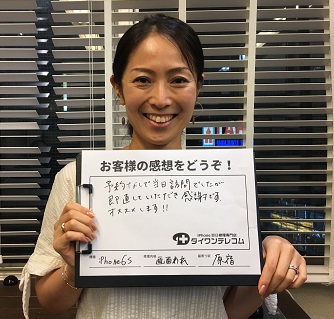 お客様の感想をどうぞ！
予約なしで当日訪問でしたが
即直していただき感謝です。
オススメします!!
iPhone即日修理専門店
ダイワンテレコム
機種 iPhone6s
画面割れ
原宿